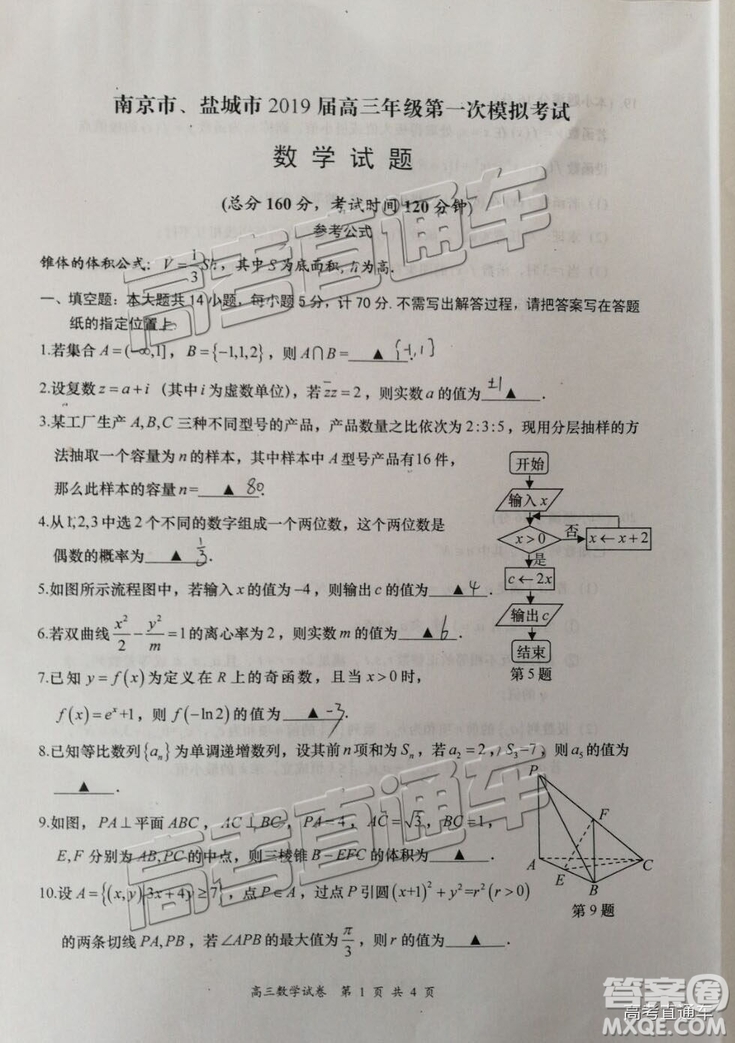 南京市、盐城市 2019 届高三年级第一次模拟考试
数 学 试 题
(总分 160 分，考试时间 120 分钟)
参考公式
锥体的体积公式：V=1/3Sh，其中 S 为底面积，h 为高.
一、填空题：本大题共 14 小题，每小题 5 分，计 70 分. 不需写出解答过程，请把答案写在答题
纸的指定位置上.
1.若集合 A=(-∞,1]，B={-1,1,2}，则 A∩B= ▲ {-1,1}
2.设复数 z=a+i（其中 i 为虚数单位），若 z̄z=2，则实数 a 的值为 ▲ ±1.
3.某工厂生产 A,B,C 三种不同型号的产品，产品数量之比依次为 2:3:5，现用分层抽样的方
法抽取一个容量为 n 的样本，其中样本中 A 型号产品有16 件，
那么此样本的容量 n= ▲ 80.
4.从1,2,3中选 2 个不同的数字组成一个两位数，这个两位数是
偶数的概率为 ▲ 1/3.
5.如图所示流程图中，若输入 x 的值为 -4，则输出 c 的值为 ▲ 4.
6.若双曲线 x²/2 - y²/m =1的离心率为 2，则实数 m 的值为 ▲ 6.
7.已知 y=f(x)为定义在 R 上的奇函数，且当 x>0 时，
f(x)=eˣ+1，则 f(-ln2)的值为 ▲ -3.
8.已知等比数列{aₙ}为单调递增数列，设其前 n 项和为 Sₙ，若 a₂=2，S₃=7，则 a₅的值为
▲ .
9.如图，PA⊥平面 ABC，AC⊥BC，PA=4，AC=√3，BC=1，
E,F 分别为 AB,PC 的中点，则三棱锥 B-EFC 的体积为 ▲ .
10.设 A={(x,y)|3x+4y≥7}，点 P∈A，过点 P 引圆(x+1)²+y²=r²(r>0)
的两条切线 PA,PB，若∠APB 的最大值为 π/3，则 r 的值为 ▲ .
开始
输入 x
x>0
否
x←x+2
是
c←2x
输出 c
结束
第 5 题
P
F
A
C
E
B
第 9 题
高三数学试卷 第 1 页 共 4 页
高考直通车
高考直通车
高考直通车
答案圈
高考直通车
MXQE.COM